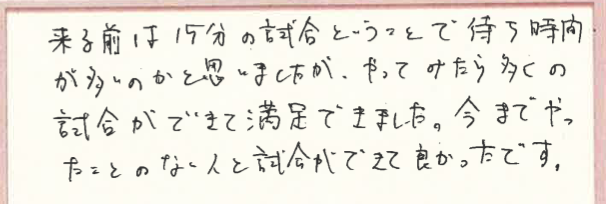 来る前は15分の試合ということで待ち時間
が多いのかと思いましたが、やってみたら多くの
試合ができて満足できました。今までやっ
たことのない人と試合ができて良かったです。